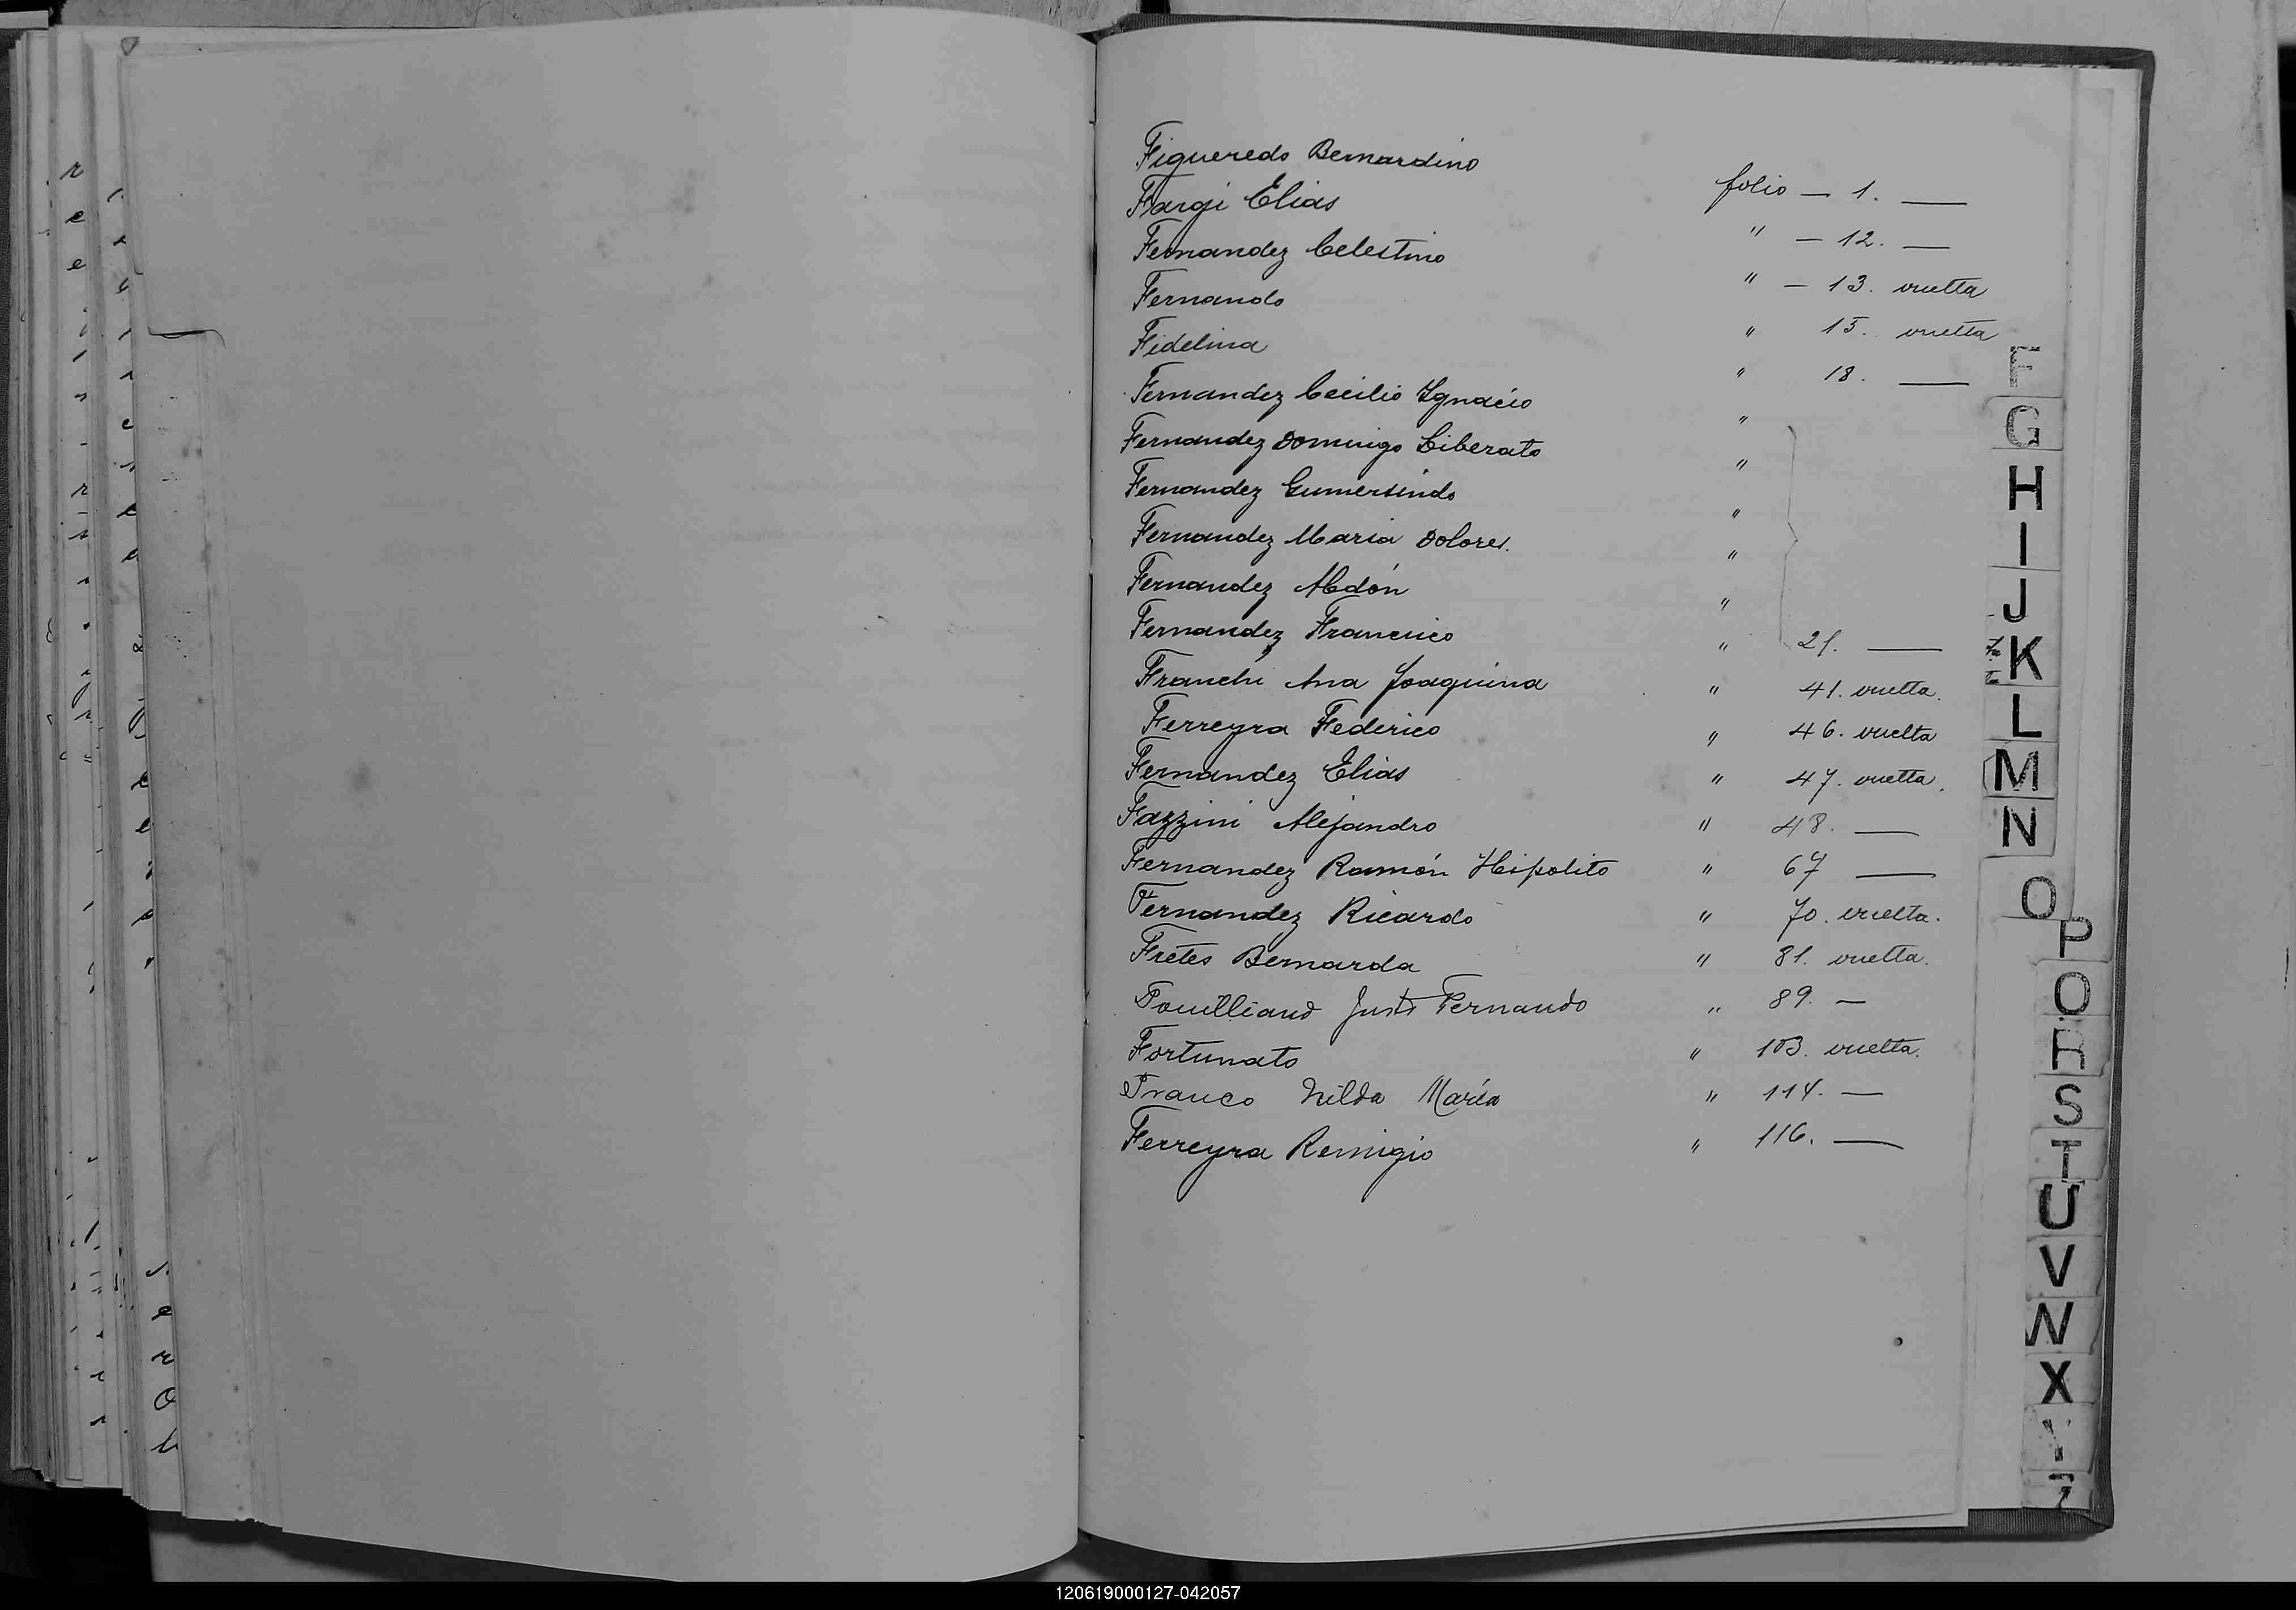 Figueredo Bernardino folio — 1. —
Fargi Elias " — 12. —
Fernandez Celestino " — 13. vuelta
Fernando " 15. vuelta
Fidelina " 18. —
Fernandez Cecilio Ygnacio "
Fernandez Domingo Liberato "
Fernandez Gumersindo "
Fernandez Maria Dolores. "
Fernandez Abdón "
Fernandez Francisco " 21. —
Franchi Ana Joaquina " 41. vuelta.
Ferreyra Federico " 46. vuelta
Fernandez Elias " 47. vuelta.
Fazzini Alejandro " 48. —
Fernandez Ramón Hipolito " 67 —
Fernandez Ricardo " 70. vuelta.
Fretes Bernarda " 81. vuelta.
Fouilliand Justo Fernando " 89. —
Fortunato " 103. vuelta.
Franco Nilda María " 114. —
Ferreyra Remigio " 116. —
F
G
H
I
J
K
L
M
N
O
P
Q
R
S
T
U
V
W
X
120619000127-042057